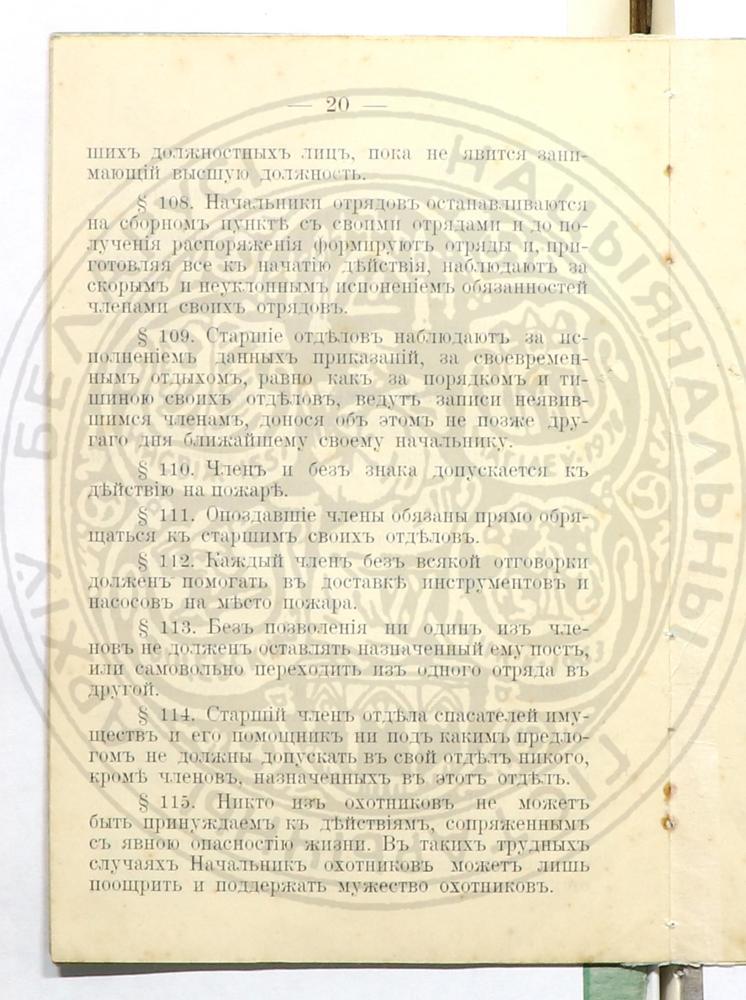 — 20 —
шихъ должностныхъ лицъ, пока не явится зани-
мающій высшую должность.
§ 108. Начальники отрядовъ останавливаются
на сборномъ пунктѣ съ своими отрядами и до по-
лученія распоряженія формируютъ отряды и, при-
готовляя все къ начатію дѣйствія, наблюдаютъ за
скорымъ и неуклоннымъ испоненіемъ обязанностей
членами своихъ отрядовъ.
§ 109. Старшіе отдѣловъ наблюдаютъ за ис-
полненіемъ данныхъ приказаній, за своевремен-
нымъ отдыхомъ, равно какъ за порядкомъ и ти-
шиною своихъ отдѣловъ, ведутъ записи неявив-
шимся членамъ, донося объ этомъ не позже дру-
гаго дня ближайшему своему начальнику.
§ 110. Членъ и безъ знака допускается къ
дѣйствію на пожарѣ.
§ 111. Опоздавшіе члены обязаны прямо обра-
щаться къ старшимъ своихъ отдѣловъ.
§ 112. Каждый членъ безъ всякой отговорки
долженъ помогать въ доставкѣ инструментовъ и
насосовъ на мѣсто пожара.
§ 113. Безъ позволенія ни одинъ изъ чле-
новъ не долженъ оставлять назначенный ему постъ,
или самовольно переходить изъ одного отряда въ
другой.
§ 114. Старшій членъ отдѣла спасателей иму-
ществъ и его помощникъ ни подъ какимъ предло-
гомъ не должны допускать въ свой отдѣлъ никого,
кромѣ членовъ, назначенныхъ въ этотъ отдѣлъ.
§ 115. Никто изъ охотниковъ не можетъ
быть принуждаемъ къ дѣйствіямъ, сопряженнымъ
съ явною опасностію жизни. Въ такихъ трудныхъ
случаяхъ Начальникъ охотниковъ можетъ лишь
поощрить и поддержать мужество охотниковъ.